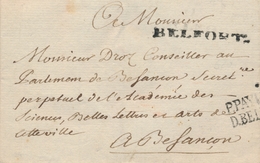 A Monsieur
BELFORT.
Monsieur Droz Conseiller au
Parlement de Besançon Secret.re
perpetuel de l'Academie des
Sciences, Belles Lettres et arts de
cette ville
P.PAY
D.BEL
A Besançon